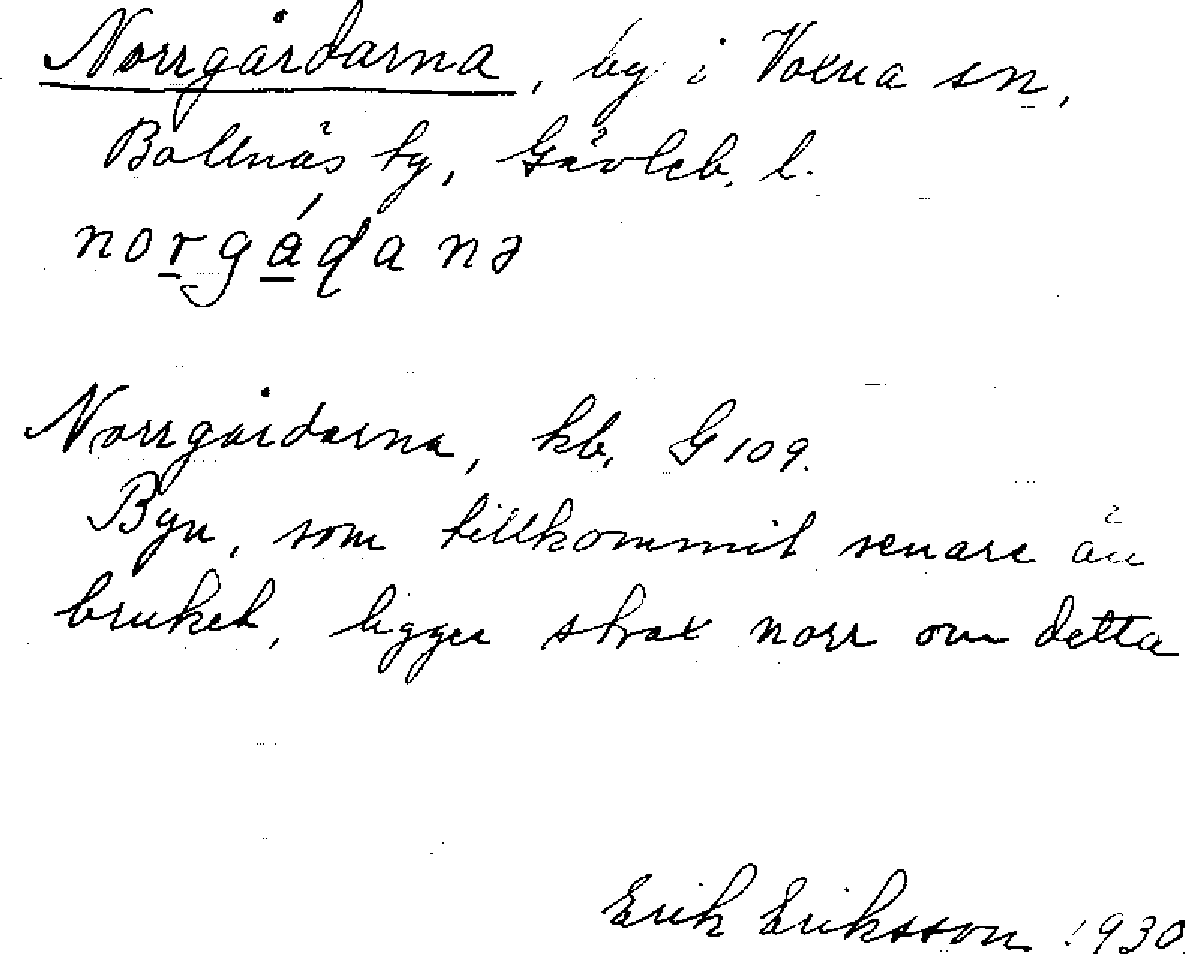 Norrgårdarna, by i Voxna sn,
Bollnäs tg, Gävleb. l.
norgádanə
Norrgårdarna, kb. G 109.
Byn, som tillkommit senare än
bruket, ligger strax norr om detta
Erik Eriksson 1930.